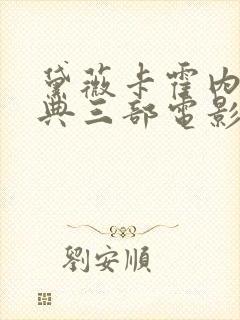 黛薇卡霍内
典三部電影
劉安順